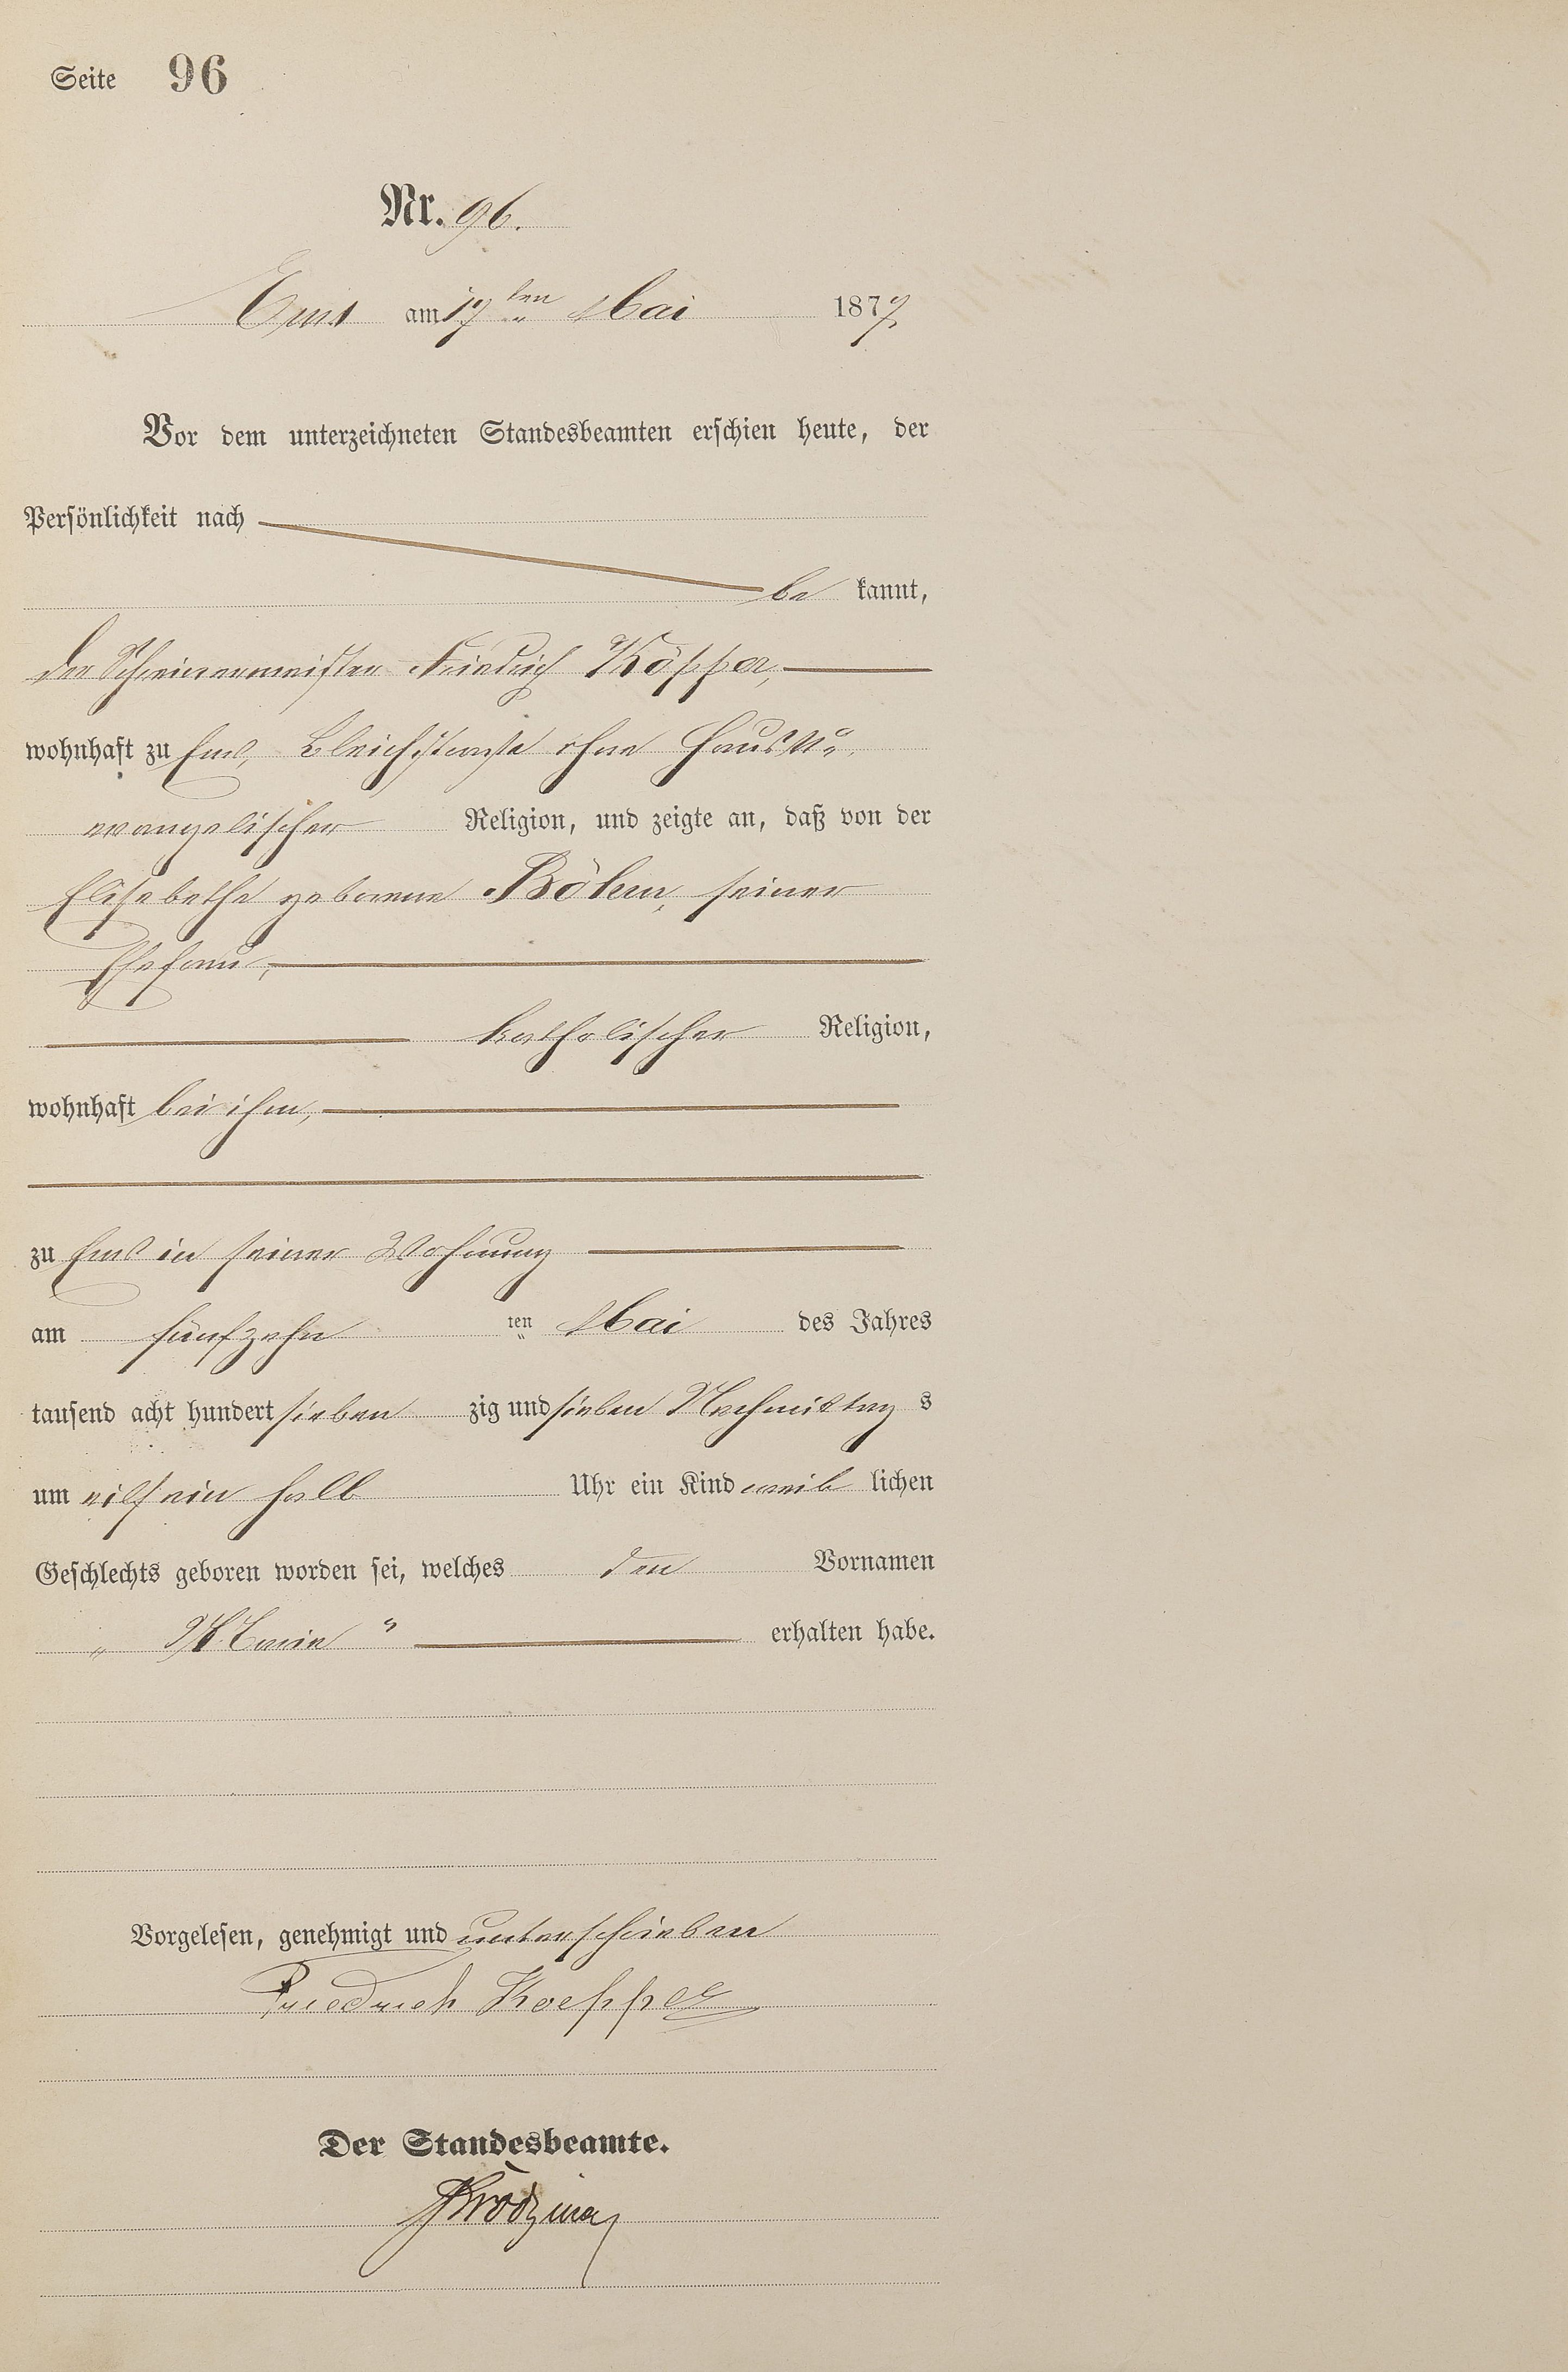 Seite 96
Nr. 96.
Ems am 17ten Mai 1877.
Vor dem unterzeichneten Standesbeamten erschien heute, der
Persönlichkeit nach
be kannt,
der Schreinermeister Friedrich Köpper,
wohnhaft zu Ems, Bleichstraße ohne Haus No.
evangelischer Religion, und zeigte an, daß von der
Elisabethe geborene Böhm, seiner
Ehefrau,
katholischer Religion,
wohnhaft bei ihm,
zu Ems in seiner Wohnung
am fünfzehn ten Mai des Jahres
tausend acht hundert sieben zig und sieben Nachmittag s
um eilf ein halb Uhr ein Kind weib lichen
Geschlechts geboren worden sei, welches den Vornamen
„ Marie “ erhalten habe.
Vorgelesen, genehmigt und unterschrieben
Friedrich Koepper
Der Standesbeamte.